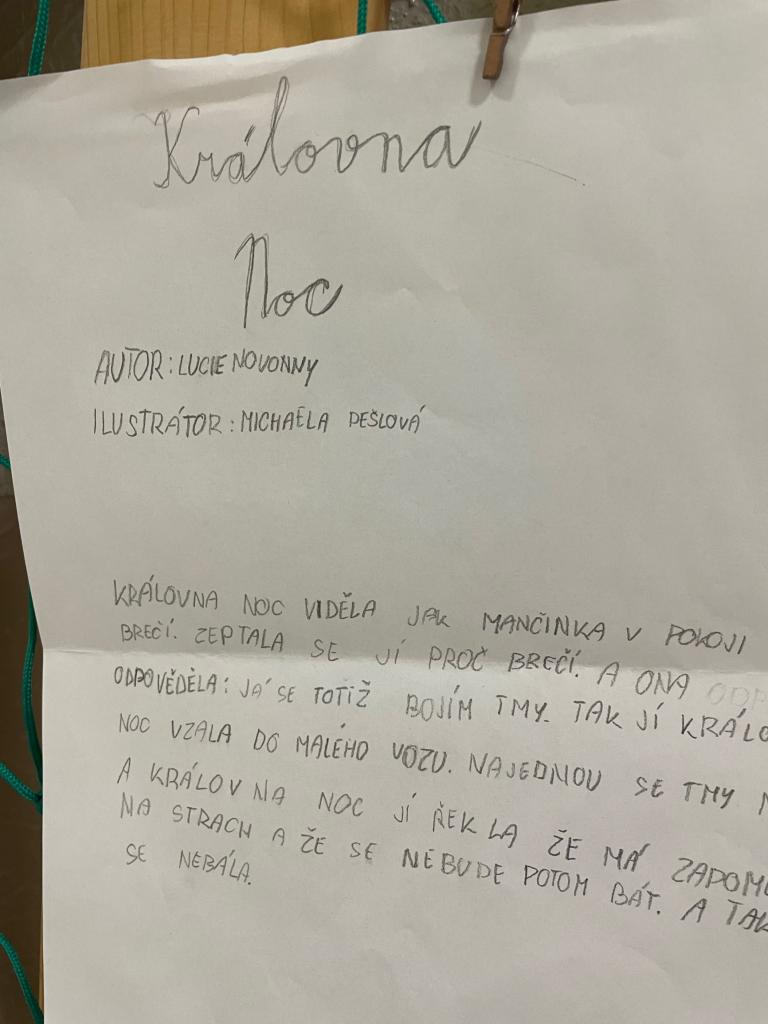 Královna
Noc
AUTOR: LUCIE NOVONNY
ILUSTRÁTOR: MICHAELA PEŠLOVÁ
KRÁLOVNA NOC VIDĚLA JAK MANČINKA V POKOJI
BREČÍ. ZEPTALA SE JÍ PROČ BREČÍ. A ONA
ODPOVĚDĚLA: JÁ SE TOTIŽ BOJÍM TMY. TAK JÍ KRÁLO
NOC VZALA DO MALÉHO VOZU. NAJEDNOU SE TMY
A KRÁLOVNA NOC JÍ ŘEKLA ŽE MÁ ZAPOM
NA STRACH A ŽE SE NEBUDE POTOM BÁT. A TAK
SE NEBÁLA.